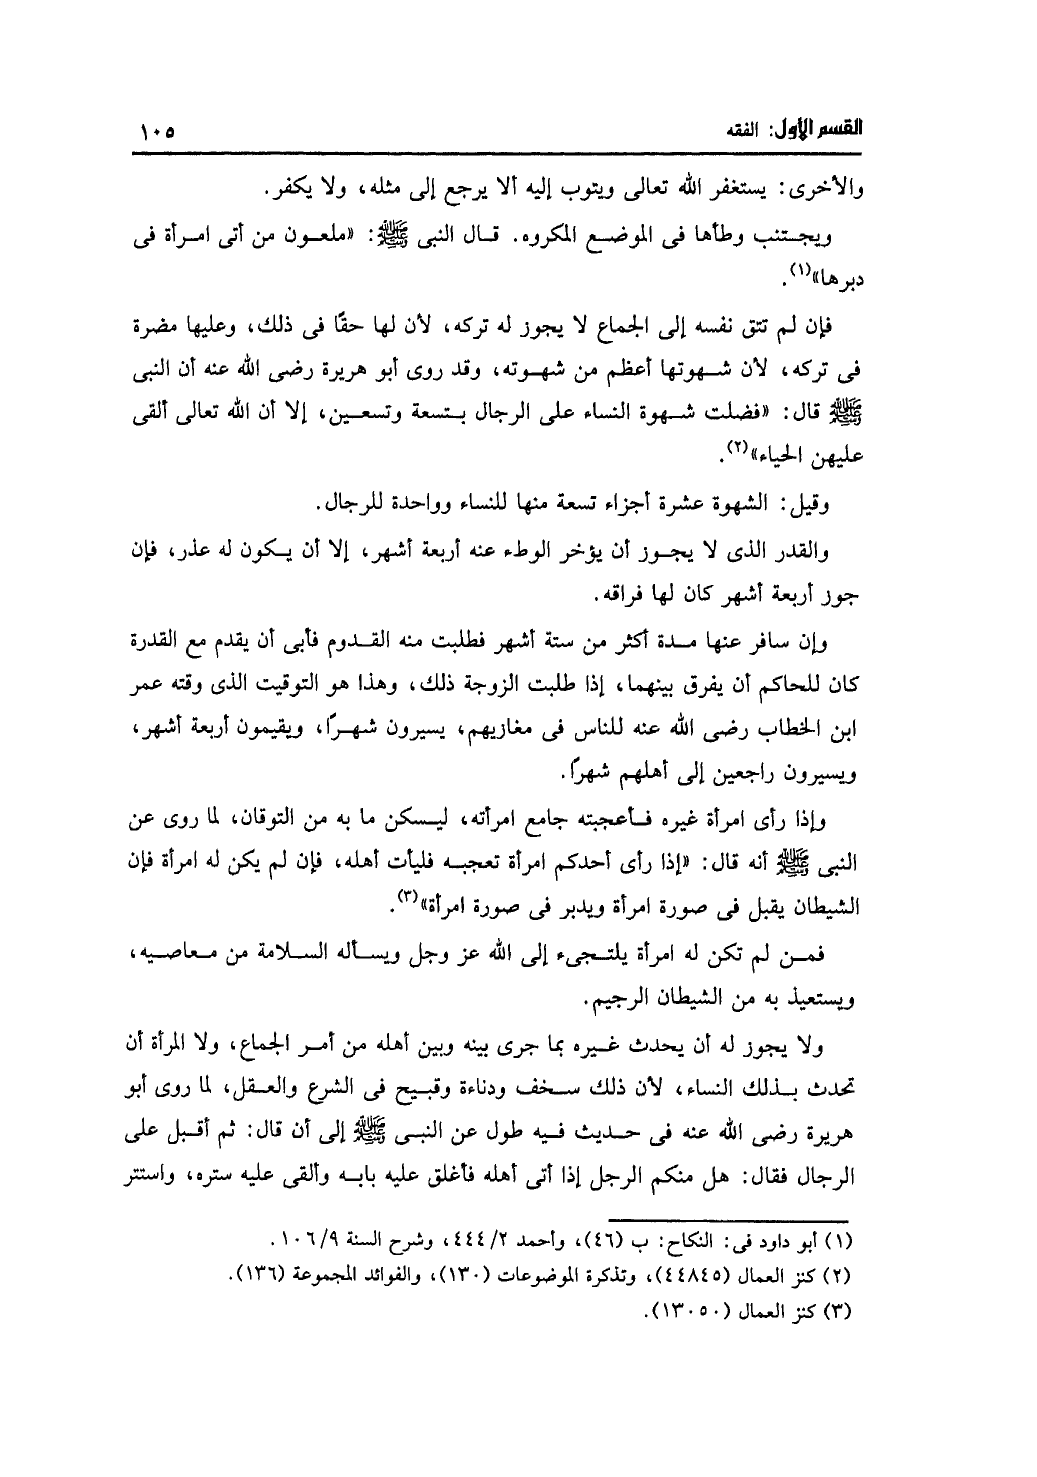 القسم الأول: الفقه ١٠٥
والأخرى: يستغفر الله تعالى ويتوب إليه ألا يرجع إلى مثله، ولا يكفر.
ويجتنب وطأها فى الموضع المكروه. قال النبى ﷺ: «ملعون من أتى امرأة فى
دبرها»(١).
فإن لم تتق نفسه إلى الجماع لا يجوز له تركه، لأن لها حقًا فى ذلك، وعليها مضرة
فى تركه، لأن شهوتها أعظم من شهوته، وقد روى أبو هريرة رضى الله عنه أن النبى
ﷺ قال: «فضلت شهوة النساء على الرجال بتسعة وتسعين، إلا أن الله تعالى ألقى
عليهن الحياء»(٢).
وقيل: الشهوة عشرة أجزاء تسعة منها للنساء وواحدة للرجال.
والقدر الذى لا يجوز أن يؤخر الوطء عنه أربعة أشهر، إلا أن يكون له عذر، فإن
جوز أربعة أشهر كان لها فراقه.
وإن سافر عنها مدة أكثر من ستة أشهر فطلبت منه القدوم فأبى أن يقدم مع القدرة
كان للحاكم أن يفرق بينهما، إذا طلبت الزوجة ذلك، وهذا هو التوقيت الذى وقته عمر
ابن الخطاب رضى الله عنه للناس فى مغازيهم، يسيرون شهرًا، ويقيمون أربعة أشهر،
ويسيرون راجعين إلى أهلهم شهرًا.
وإذا رأى امرأة غيره فأعجبته جامع امرأته، ليسكن ما به من التوقان، لما روى عن
النبى ﷺ أنه قال: «إذا رأى أحدكم امرأة تعجبه فليأت أهله، فإن لم يكن له امرأة فإن
الشيطان يقبل فى صورة امرأة ويدبر فى صورة امرأة»(٣).
فمن لم تكن له امرأة يلتجىء إلى الله عز وجل ويسأله السلامة من معاصيه،
ويستعيذ به من الشيطان الرجيم.
ولا يجوز له أن يحدث غيره بما جرى بينه وبين أهله من أمر الجماع، ولا المرأة أن
تحدث بذلك النساء، لأن ذلك سخف ودناءة وقبيح فى الشرع والعقل، لما روى أبو
هريرة رضى الله عنه فى حديث فيه طول عن النبى ﷺ إلى أن قال: ثم أقبل على
الرجال فقال: هل منكم الرجل إذا أتى أهله فأغلق عليه بابه وألقى عليه ستره، واستتر
(١) أبو داود فى: النكاح: ب (٤٦)، وأحمد ٤٤٤/٢، وشرح السنة ١٠٦/٩.
(٢) كنز العمال (٤٤٨٤٥)، وتذكرة الموضوعات (١٣٠)، والفوائد المجموعة (١٣٦).
(٣) كنز العمال (١٣٠٥٠).